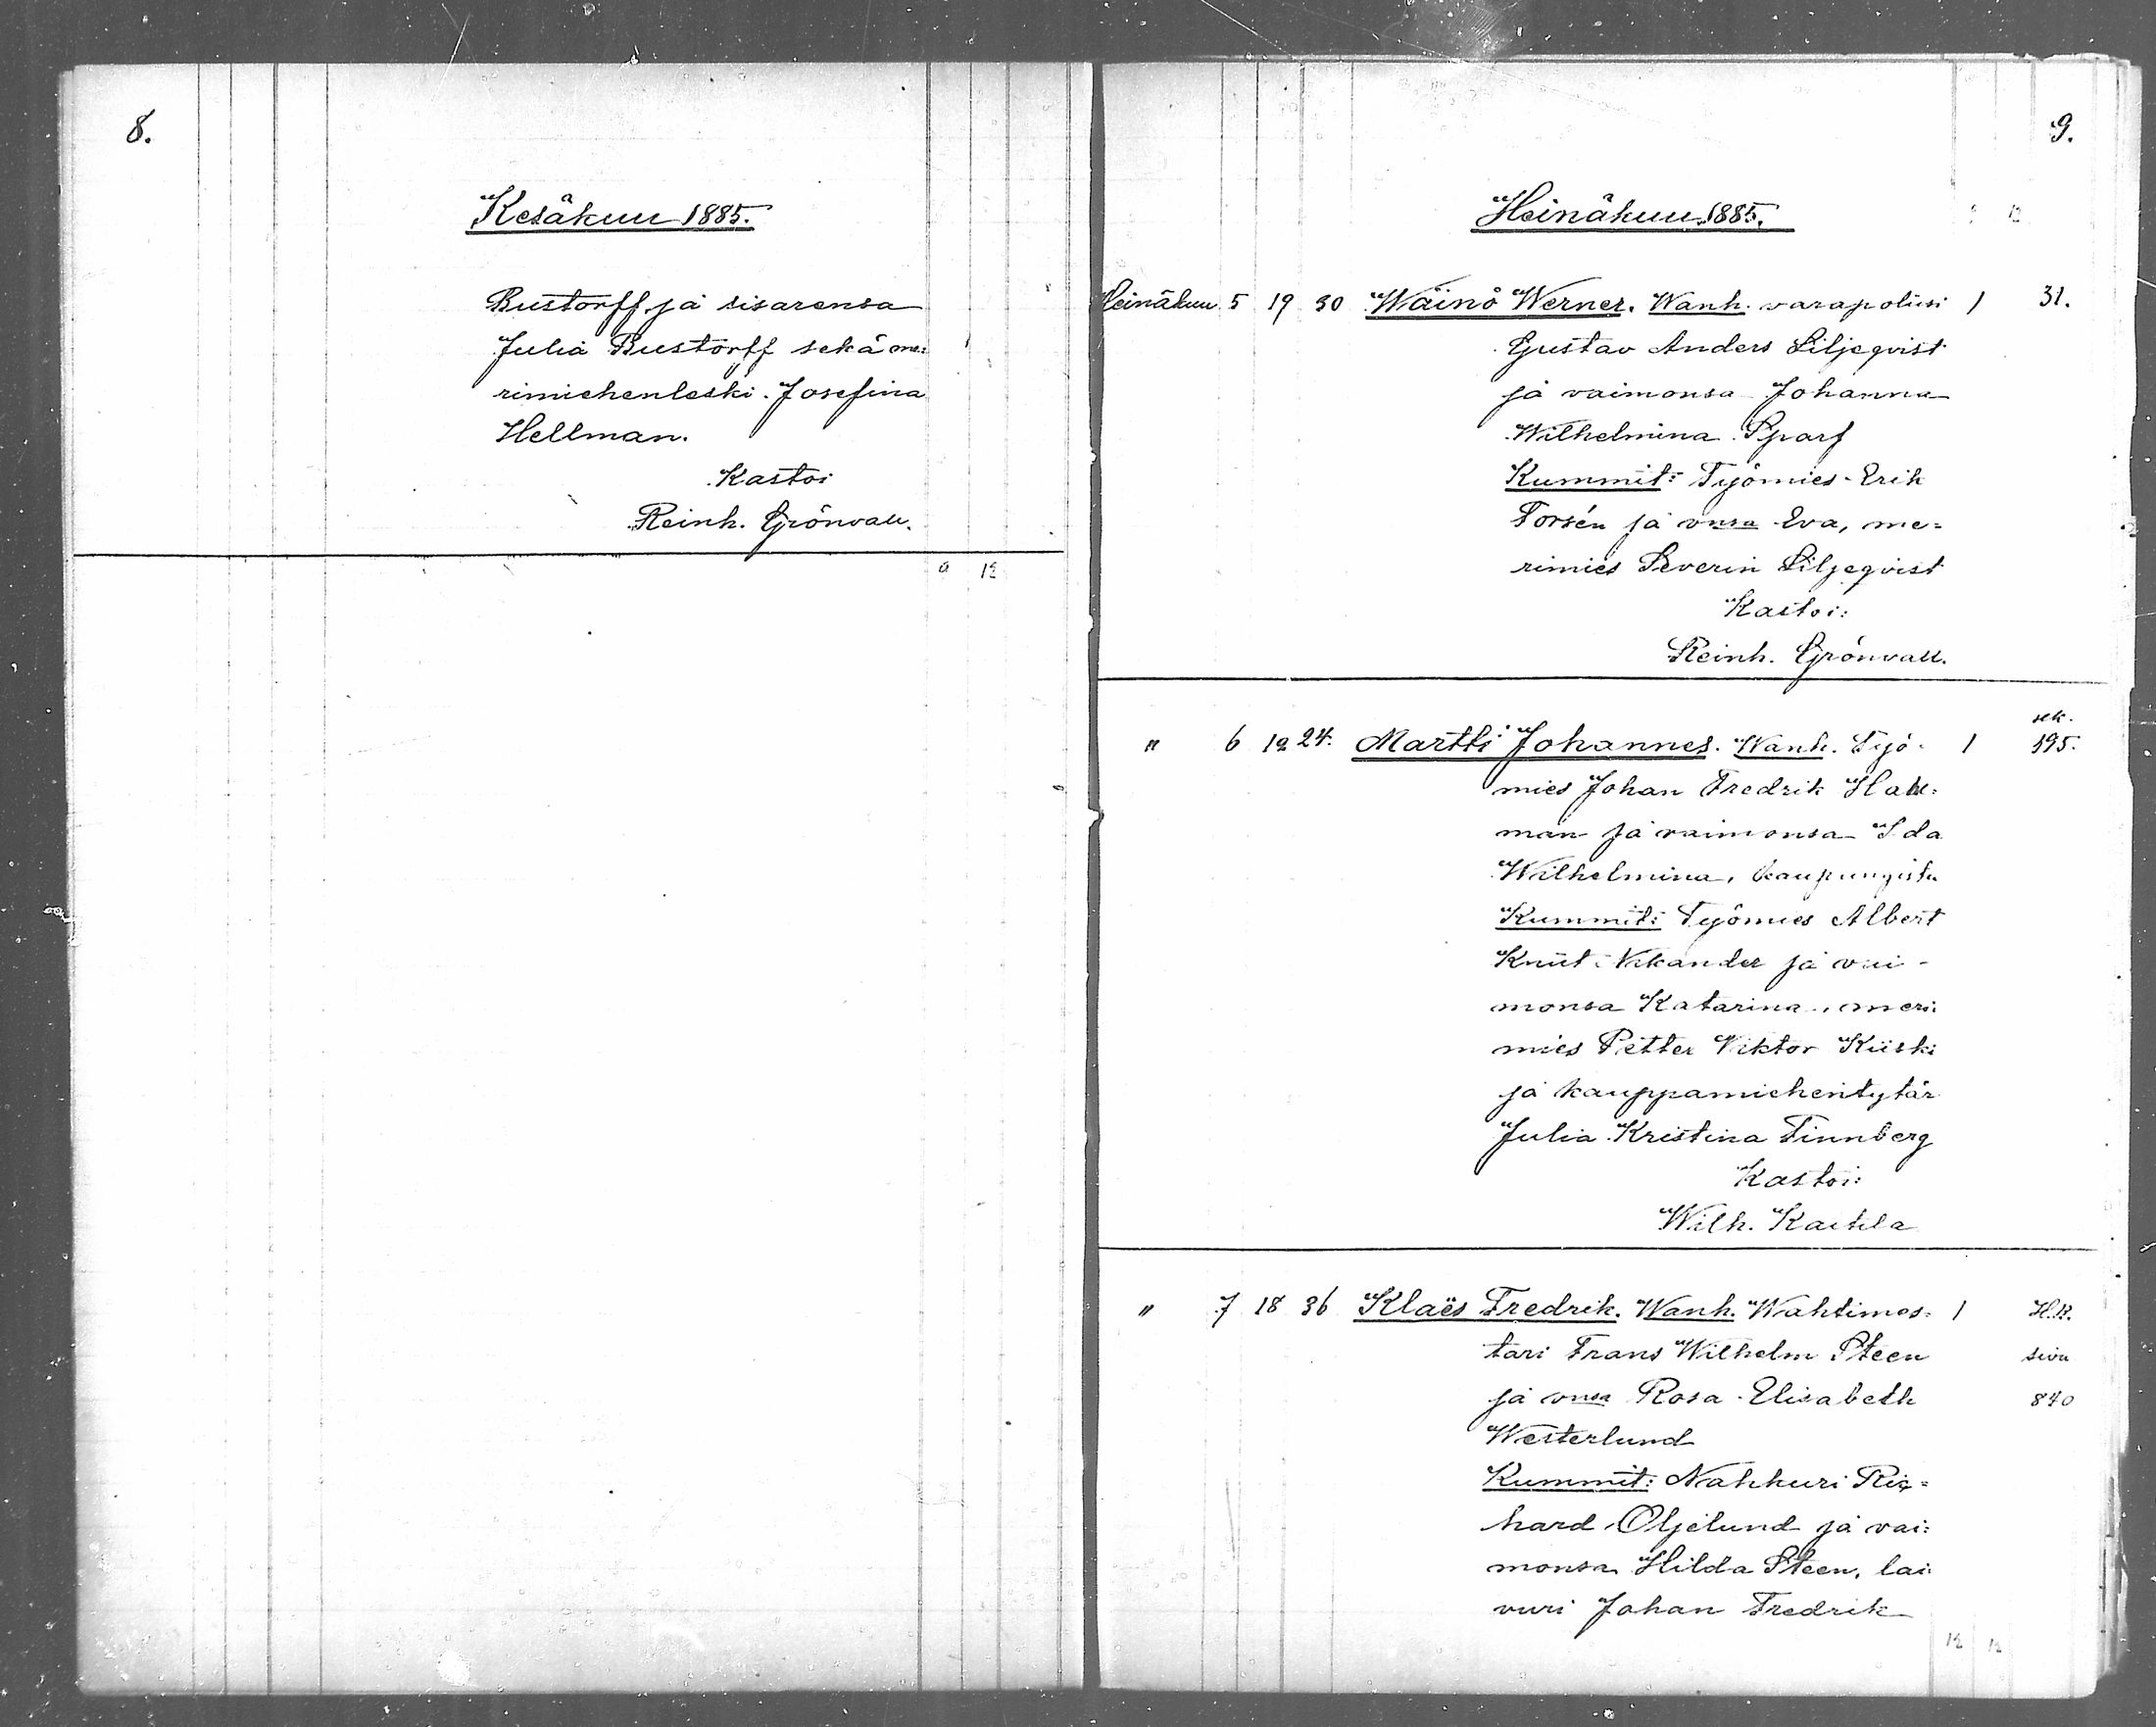 8.
Kesäkuu 1885.
Bustorff ja sisarensa
Julia Bustorff sekä me=
rimiehenleski Josefina
Hellman.
Kastoi
Reinh. Grönvall.
9 12
9.
Heinäkuu 1885.
Heinäkuu 5 19 30 Wäinö Werner. Wanh. varapoliisi 1 31.
Gustav Anders Liljeqvist
ja vaimonsa Johanna
Wilhelmina Sparf
Kummit: Työmies Erik
Forsén ja vnsa Eva, me=
rimies Severin Liljeqvist
Kastoi:
Reinh. Grönvall.
sek.
" 6 12 24. Martti Johannes. Wanh. Työ- 1 195.
mies Johan Fredrik Hall=
man ja vaimonsa Ida
Wilhelmina, kaupungista
Kummit: Työmies Albert
Knut Nikander ja vai-
monsa Katarina, meri=
mies Petter Viktor Kiiski
ja kauppamiehentytär
Julia Kristina Finnberg
Kastoi:
Wilh. Kaitila
" 7 18 36 Klaës Fredrik. Wanh. Wahtimes= 1 H.K.
tari Frans Wilhelm Steen sivu
ja vnsa Rosa Elisabeth 840
Westerlund
Kummit: Nahkuri Ric=
hard Oljelund ja vai=
monsa Hilda Steen, lai=
vuri Johan Fredrik
12 12